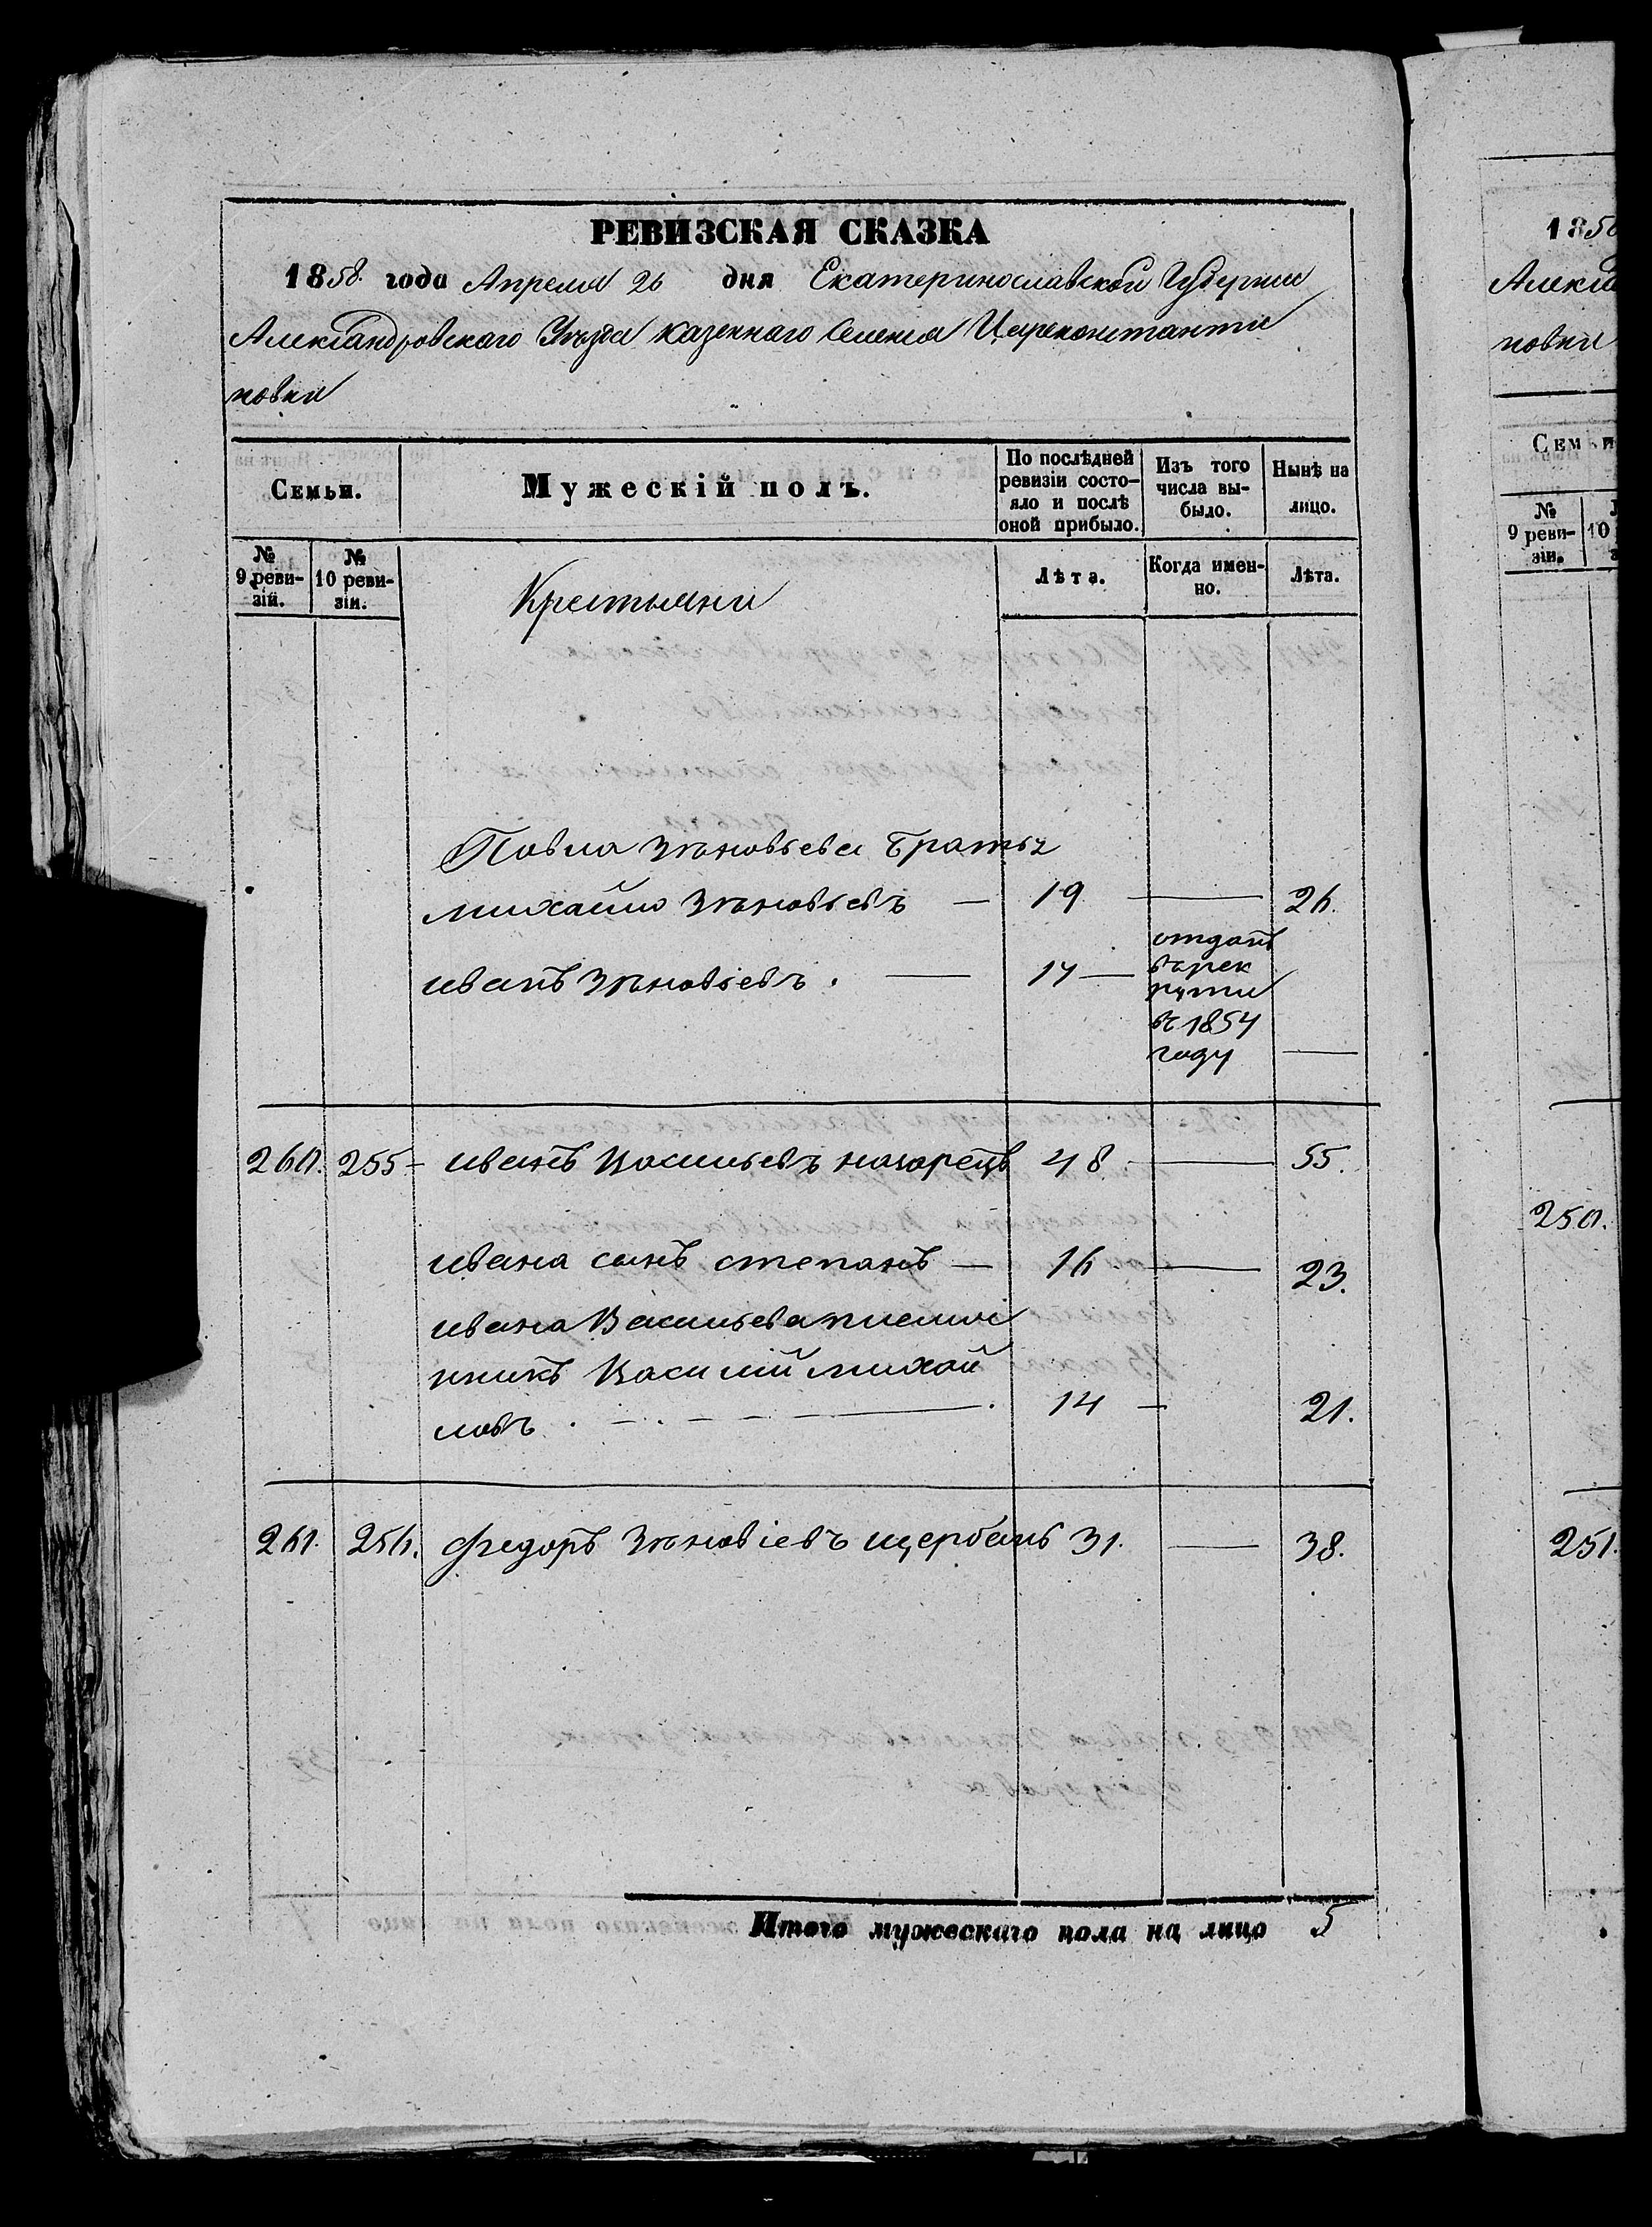 РЕВИЗСКАЯ СКАЗКА
1858. года Апреля 26 дня Екатеринославской Губернии
Александровскаго Уѣзда казеннаго Селения Цареконстанти
новки
Семьи.
Мужескій полъ.
По послѣдней ревизіи состо-яло и послѣ оной прибыло.
Изъ того числа вы-было.
Нынѣ на лицо.
№ 9 реви-зіи.
№ 10 реви-зіи.
Крестьяни
Лѣта.
Когда имен-но.
Лѣта.
Павла Зѣновьева братья
михайло Зѣновьевъ — 19 — 26.
иванъ Зѣновьевъ. — 17 — отданъ
въ рек
руты
въ 1854
году —
260. 255 - иванъ Васильевъ назарецъ 48. — 55.
ивана сынъ степанъ — 16 — 23.
ивана Васильева племя
нникъ Василій михай
ловъ. — 14 — 21.
261. 256. федоръ Зѣновіевъ щербань 31. — 38.
Итого мужескаго пола на лицо 5
1858
Алекса
новки
Семьи
№ 9 реви-зіи.
10
250.
251.